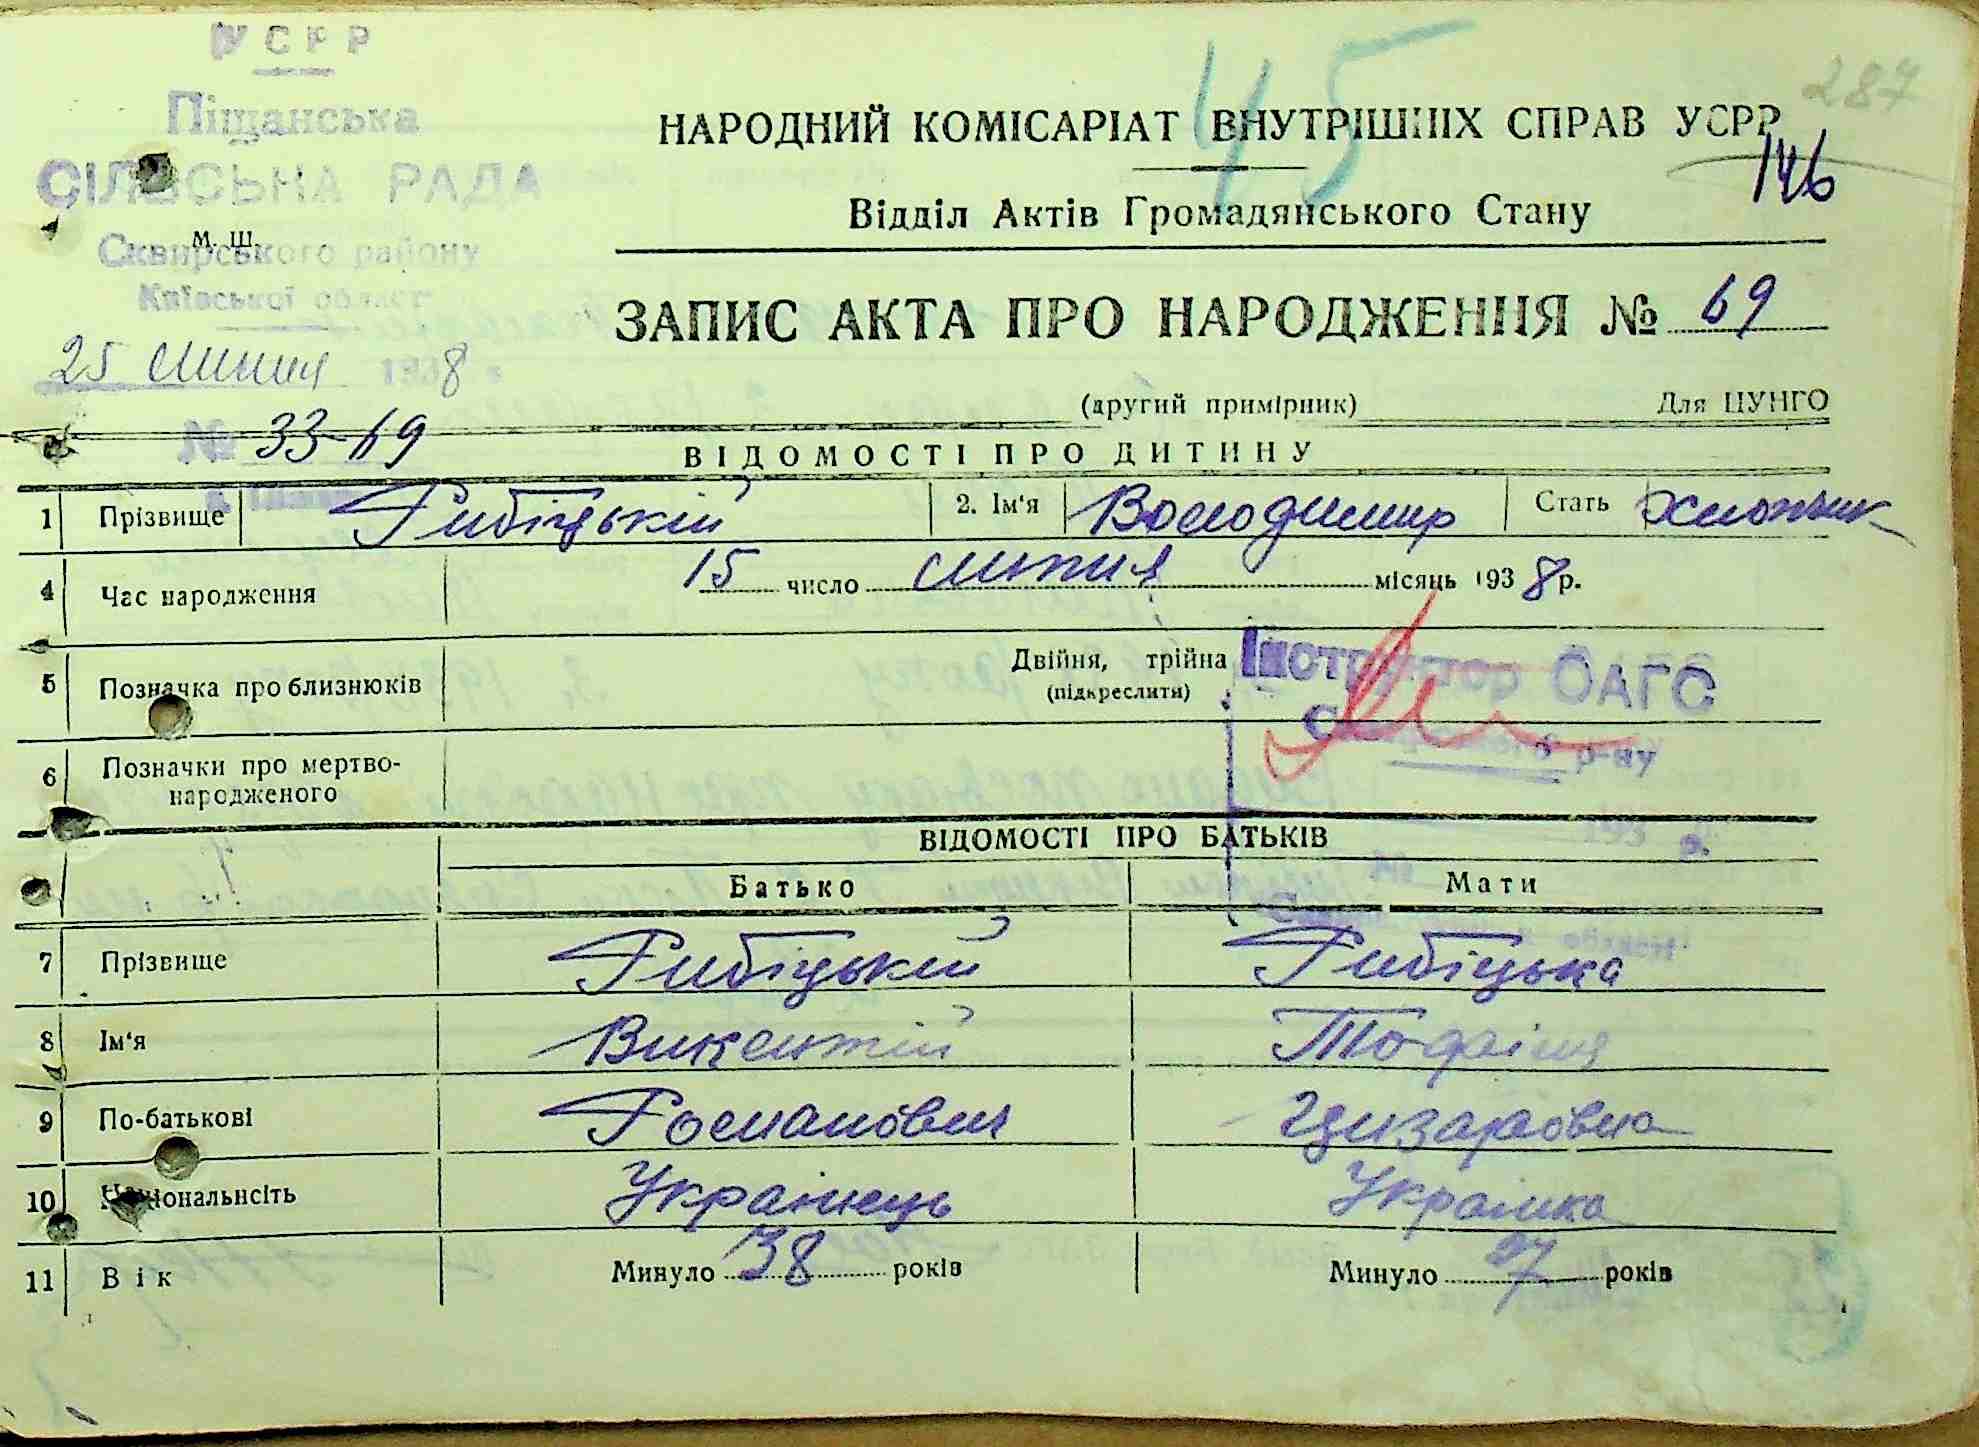 УСРР
Піщанська
СІЛЬСЬКА РАДА
м. ш.
Сквирського району
Київської област
25 липня 1938 р
№ 33-69
287
45
НАРОДНИЙ КОМІСАРІАТ ВНУТРІШНІХ СПРАВ УСРР
146
Відділ Актів Громадянського Стану
ЗАПИС АКТА ПРО НАРОДЖЕННЯ № 69
(другий примірник) Для ЦУНГО
ВІДОМОСТІ ПРО ДИТИНУ
1 Прізвище Рибіцькій 2. Ім'я Володимир Стать Хлопчик
4 Час народження 15 число липня місяць 1938 р.
5 Позначка про близнюків Двійня, трійна
(підкреслити)
Інструктор ОАГС
р-ну
193 р.
6 Позначки про мертво-
народженого
ВІДОМОСТІ ПРО БАТЬКІВ
Батько Мати
області
7 Прізвище Рибіцькій Рибіцька
8 Ім'я Викентій
9 По-батькові Романович
10 Національнсіть Українець Українка
11 Вік Минуло 38 років Минуло 27 років